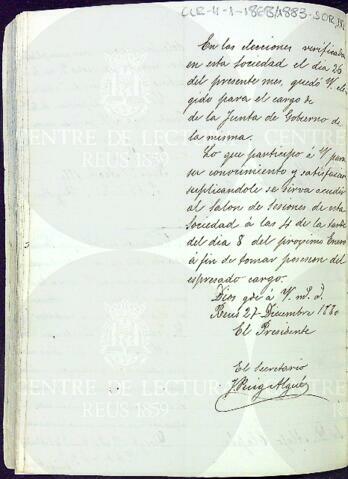 CLR-4-1-1868/1883-SOR
En las elecciones verificadas
en esta Sociedad el dia 26
del presente mes, quedó V. ele
gido para el cargo de
de la Junta de Gobierno de
la misma.
Lo que participo á V. para
su conocimiento y satisfaccion
suplicandole se sirva acudir
al Salon de Sesiones de esta
Sociedad á las 4 de la tarde
del dia 8 del proximo Enero
á fin de tomar posesion del
espresado cargo.
Dios gde á V. ms. as.
Reus 27 Diciembre 1880
El Presidente
El Secretario
J. Puig Algué
CENTRE DE LECTURA
REUS 1859
CENTRE DE LECTURA
REUS 1859